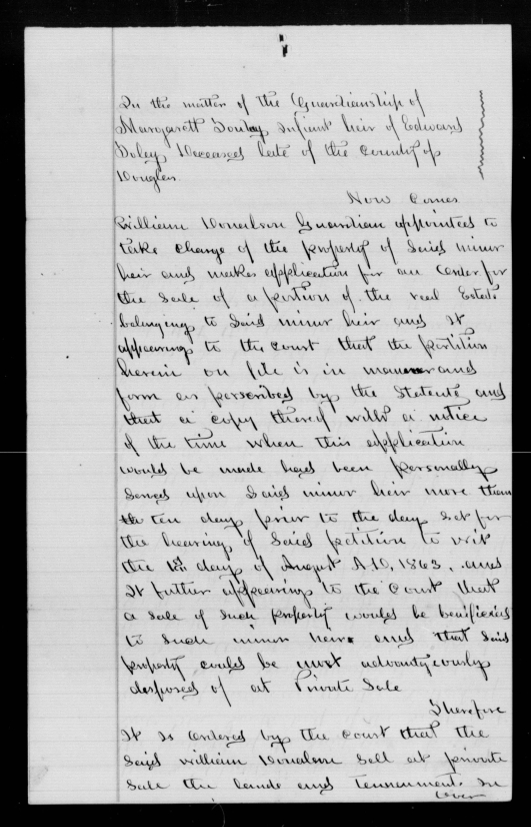 In the matter of the Guardianship of
Margarett infant heir of Edward
Foley Deceased late of the County of
Douglas
Now Comes
William Donalson Guardian appointed to
take charge of the property of Said minor
heir and makes application for an Order for
the Sale of a portion of the real Estate
belonging to Said minor heir and It
appearing to the court that the petition
herein on file is in manner and
form as perscribed by the Statute and
that a copy thereof with a notice
of the time when this application
would be made had been personally
Served upon Said minor heir more than
ten days prior to the day Set for
the hearing of Said petition to wit
the day of August A.D. 1863, and
It futher appearing to the Court that
a Sale of Such property would be
to Such minor heir and that Said
property could be most
disposed of at Private Sale
Therefore
It Is Ordered by the Court that the
Said William Donalson Sell at private
Sale the lands and In
Over